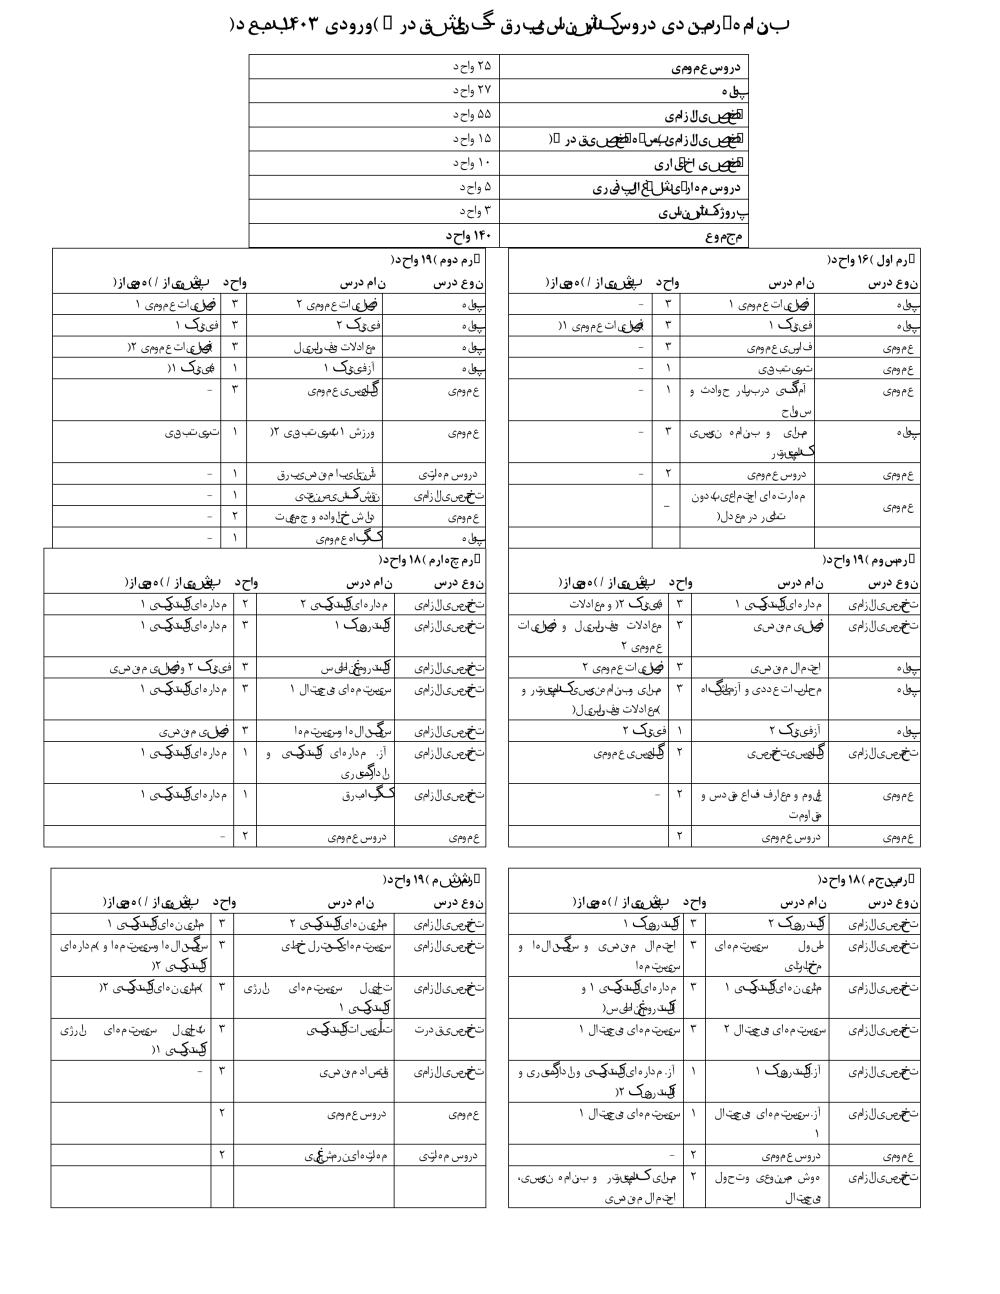 برنامه ترمبندی دروس کارشناسی برق گرایش قدرت (ورودی ۱۴۰۳ به بعد)
دروس عمومی ۲۵ واحد
پایه ۲۷ واحد
تخصصی الزامی ۵۵ واحد
تخصصی الزامی (بسته تخصصی قدرت) ۱۵ واحد
تخصصی اختیاری ۱۰ واحد
دروس مهارتی اشتغال پذیری ۵ واحد
پروژه کارشناسی ۳ واحد
مجموع ۱۴۰ واحد
ترم اول (۱۶ واحد)
نوع درس نام درس واحد پیش نیاز / (هم نیاز)
پایه ریاضیات عمومی ۱ ۳ -
پایه فیزیک ۱ ۳ (ریاضیات عمومی ۱)
عمومی فارسی عمومی ۳ -
عمومی تربیت بدنی ۱ -
عمومی آمادگی دربرابر حوادث و ۱ -
سوانح
پایه مبانی و برنامه نویسی ۳ -
کامپیوتر
عمومی دروس عمومی ۲ -
عمومی مهارت های اجتماعی (بدون -
تاثیر در معدل)
ترم دوم (۱۹ واحد)
نوع درس نام درس واحد پیش نیاز / (هم نیاز)
پایه ریاضیات عمومی ۲ ۳ ریاضیات عمومی ۱
پایه فیزیک ۲ ۳ فیزیک ۱
پایه معادلات دیفرانسیل ۳ (ریاضیات عمومی ۲)
پایه آز فیزیک ۱ ۱ (فیزیک ۱)
عمومی انگلیسی عمومی ۳ -
عمومی ورزش ۱ (تربیت بدنی ۲) ۱ تربیت بدنی
دروس مهارتی آشنایی با مهندسی برق ۱ -
تخصصی الزامی نقشه کشی صنعتی ۱ -
عمومی دانش خانواده و جمعیت ۲ -
پایه کارگاه عمومی ۱ -
ترم سوم (۱۹ واحد)
نوع درس نام درس واحد پیش نیاز / (هم نیاز)
تخصصی الزامی مدارهای الکتریکی ۱ ۳ (فیزیک ۲) و معادلات
تخصصی الزامی ریاضی مهندسی ۳ معادلات دیفرانسیل و ریاضیات
عمومی ۲
پایه احتمال مهندسی ۳ ریاضیات عمومی ۲
پایه محاسبات عددی و آزمایشگاه ۳ مبانی و برنامه نویسی کامپیوتر و
(معادلات دیفرانسیل)
پایه آز فیزیک ۲ ۱ فیزیک ۲
تخصصی الزامی انگلیسی تخصصی ۲ انگلیسی عمومی
عمومی علوم و معارف دفاع مقدس و ۲ -
مقاومت
عمومی دروس عمومی ۲
ترم چهارم (۱۸ واحد)
نوع درس نام درس واحد پیش نیاز / (هم نیاز)
تخصصی الزامی مدارهای الکتریکی ۲ ۲ مدارهای الکتریکی ۱
تخصصی الزامی الکترونیک ۱ ۳ مدارهای الکتریکی ۱
تخصصی الزامی الکترومغناطیس ۳ فیزیک ۲ و ریاضی مهندسی
تخصصی الزامی سیستم های دیجیتال ۱ ۳ مدارهای الکتریکی ۱
تخصصی الزامی سیگنال ها و سیستم ها ۳ ریاضی مهندسی
تخصصی الزامی آز. مدارهای الکتریکی و ۱ مدارهای الکتریکی ۱
اندازه گیری
تخصصی الزامی کارگاه برق ۱ مدارهای الکتریکی ۱
عمومی دروس عمومی ۲ -
ترم پنجم (۱۸ واحد)
نوع درس نام درس واحد پیش نیاز / (هم نیاز)
تخصصی الزامی الکترونیک ۲ ۳ الکترونیک ۱
تخصصی الزامی اصول سیستم های ۳ احتمال مهندسی و سیگنال ها و
مخابراتی سیستم ها
تخصصی الزامی ماشین های الکتریکی ۱ ۳ مدارهای الکتریکی ۱ و
(الکترومغناطیس)
تخصصی الزامی سیستم های دیجیتال ۲ ۳ سیستم های دیجیتال ۱
تخصصی الزامی آز. الکترونیک ۱ ۱ آز. مدارهای الکتریکی و اندازه گیری و
(الکترونیک ۲)
تخصصی الزامی آز. سیستم های دیجیتال ۱ سیستم های دیجیتال ۱
۱
عمومی دروس عمومی ۲ -
تخصصی الزامی هوش مصنوعی و تحول ۲ مبانی کامپیوتر و برنامه نویسی،
دیجیتال احتمال مهندسی
ترم ششم (۱۹ واحد)
نوع درس نام درس واحد پیش نیاز / (هم نیاز)
تخصصی الزامی ماشین های الکتریکی ۲ ۳ ماشین های الکتریکی ۱
تخصصی الزامی سیستم های کنترل خطی ۳ سیگنال ها و سیستم ها و (مدارهای
الکتریکی ۲)
تخصصی الزامی تحلیل سیستم های انرژی ۳ (ماشین های الکتریکی ۲)
الکتریکی ۱
تخصصی قدرت تأسیسات الکتریکی ۳ (تحلیل سیستم های انرژی
الکتریکی ۱)
تخصصی الزامی اقتصاد مهندسی ۳ -
عمومی دروس عمومی ۲
دروس مهارتی مهارت های نرم شغلی ۲